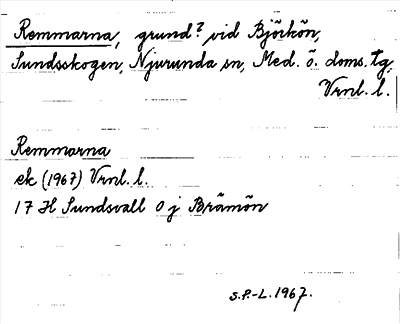 Remmarna, grund? vid Björkön,
Sundsskogen, Njurunda sn, Med. ö. doms. tg,
Vrnl. l.
Remmarna
ek (1967) Vrnl. l.
17 H Sundsvall 0 j Brämön
S.P.-L. 1967.